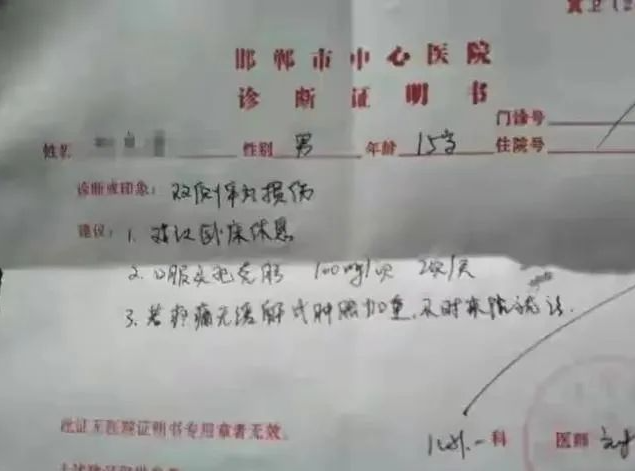 邯郸市中心医院
诊断证明书
门诊号
姓名 性别 男 年龄 15岁 住院号
诊断或印象: 双侧睾丸损伤
建议: 1. 建议卧床休息
2. 口服头孢克肟 100mg/次 2次/天
3. 若疼痛无缓解或肿胀加重,不时来院就诊.
此证无医院证明书专用章者无效。
科 医师